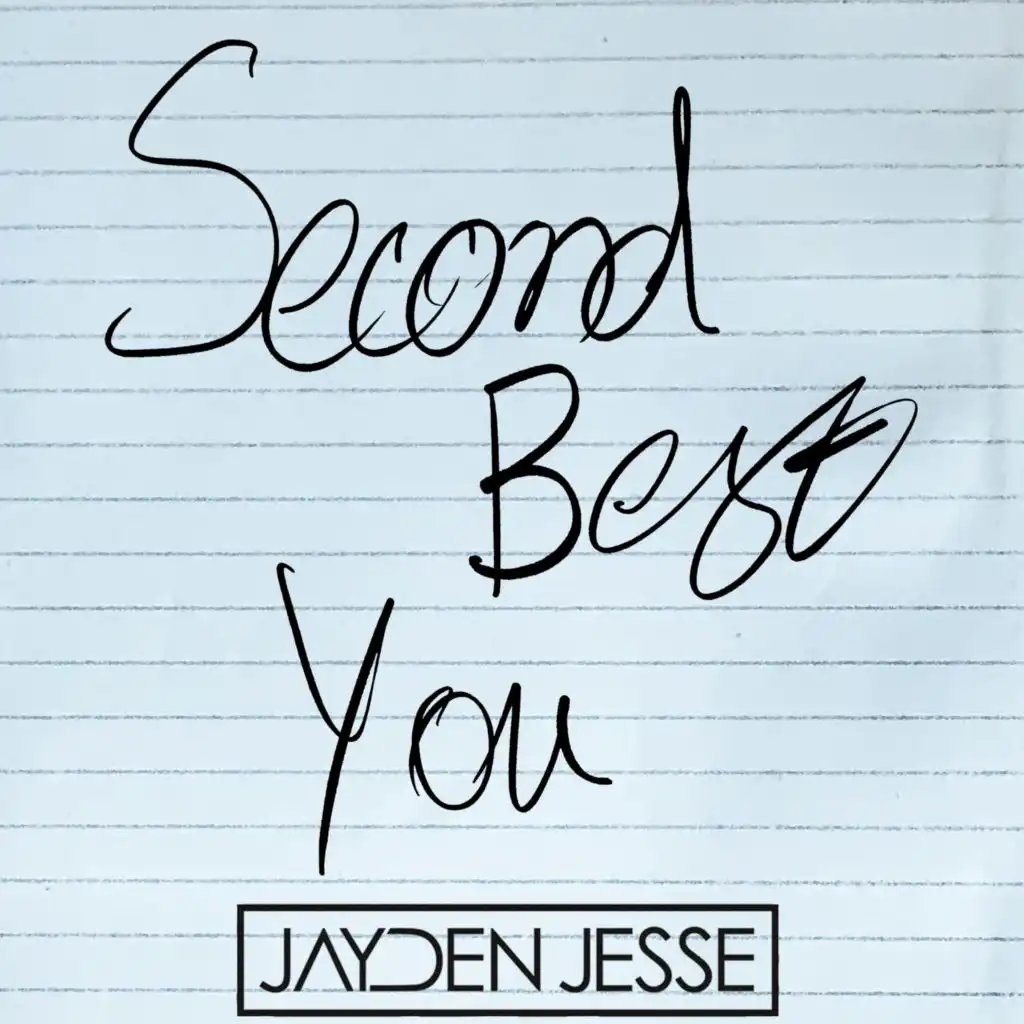 Second
Best
You
JAYDEN JESSE